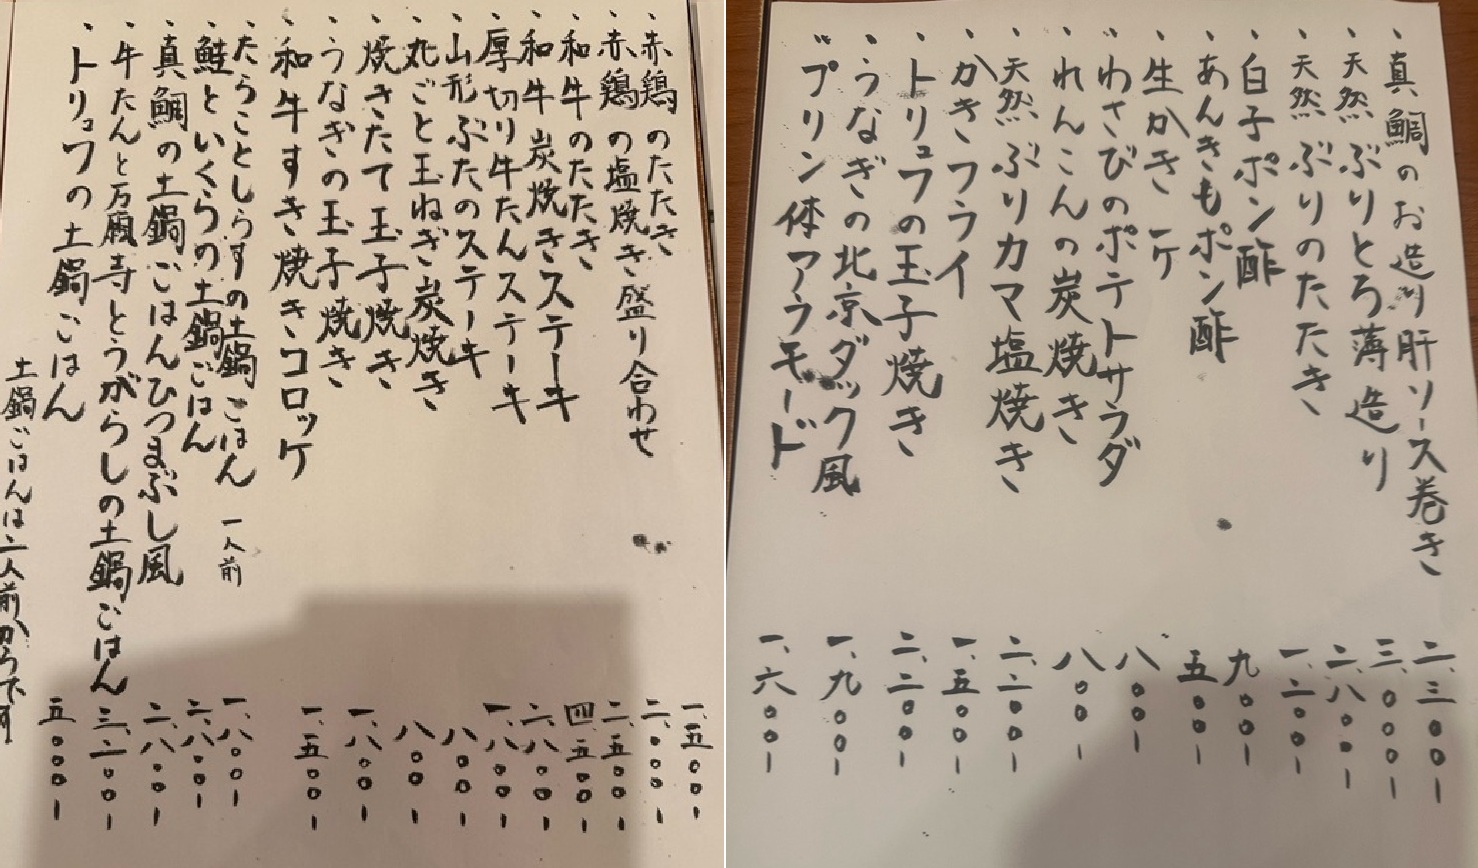 ・赤鶏のたたき 一、五〇〇-
・赤鶏の塩焼き盛り合わせ 二、〇〇〇-
・和牛のたたき 二、五〇〇-
・和牛炭焼きステーキ 四、五〇〇-
・厚切り牛たんステーキ 二、八〇〇-
・山形ぶたのステーキ 一、八〇〇-
・丸ごと玉ねぎ炭焼き 八〇〇-
・焼きたて玉子焼き 八〇〇-
・うなぎの玉子焼き 一、八〇〇-
・和牛すき焼きコロッケ 一、五〇〇-
・たらことしらすの土鍋ごはん 一人前 一、八〇〇-
・鮭といくらの土鍋ごはん 二、八〇〇-
・真鯛の土鍋ごはんひつまぶし風 二、八〇〇-
・牛たんと万願寺とうがらしの土鍋ごはん 三、二〇〇-
・トリュフの土鍋ごはん 五、〇〇〇-
土鍋ごはんは二人前からです
・真鯛のお造り肝ソース巻き 二、三〇〇-
・天然ぶりとろ薄造り 三、〇〇〇-
・天然ぶりのたたき 二、八〇〇-
・白子ポン酢 一、二〇〇-
・あんきもポン酢 九〇〇-
・生かき一ケ 五〇〇-
・わさびのポテトサラダ 八〇〇-
・れんこんの炭焼き 八〇〇-
・天然ぶりカマ塩焼き 二、二〇〇-
・かきフライ 一、五〇〇-
・トリュフの玉子焼き 二、二〇〇-
・うなぎの北京ダック風 一、九〇〇-
・プリン体アラモード 一、六〇〇-